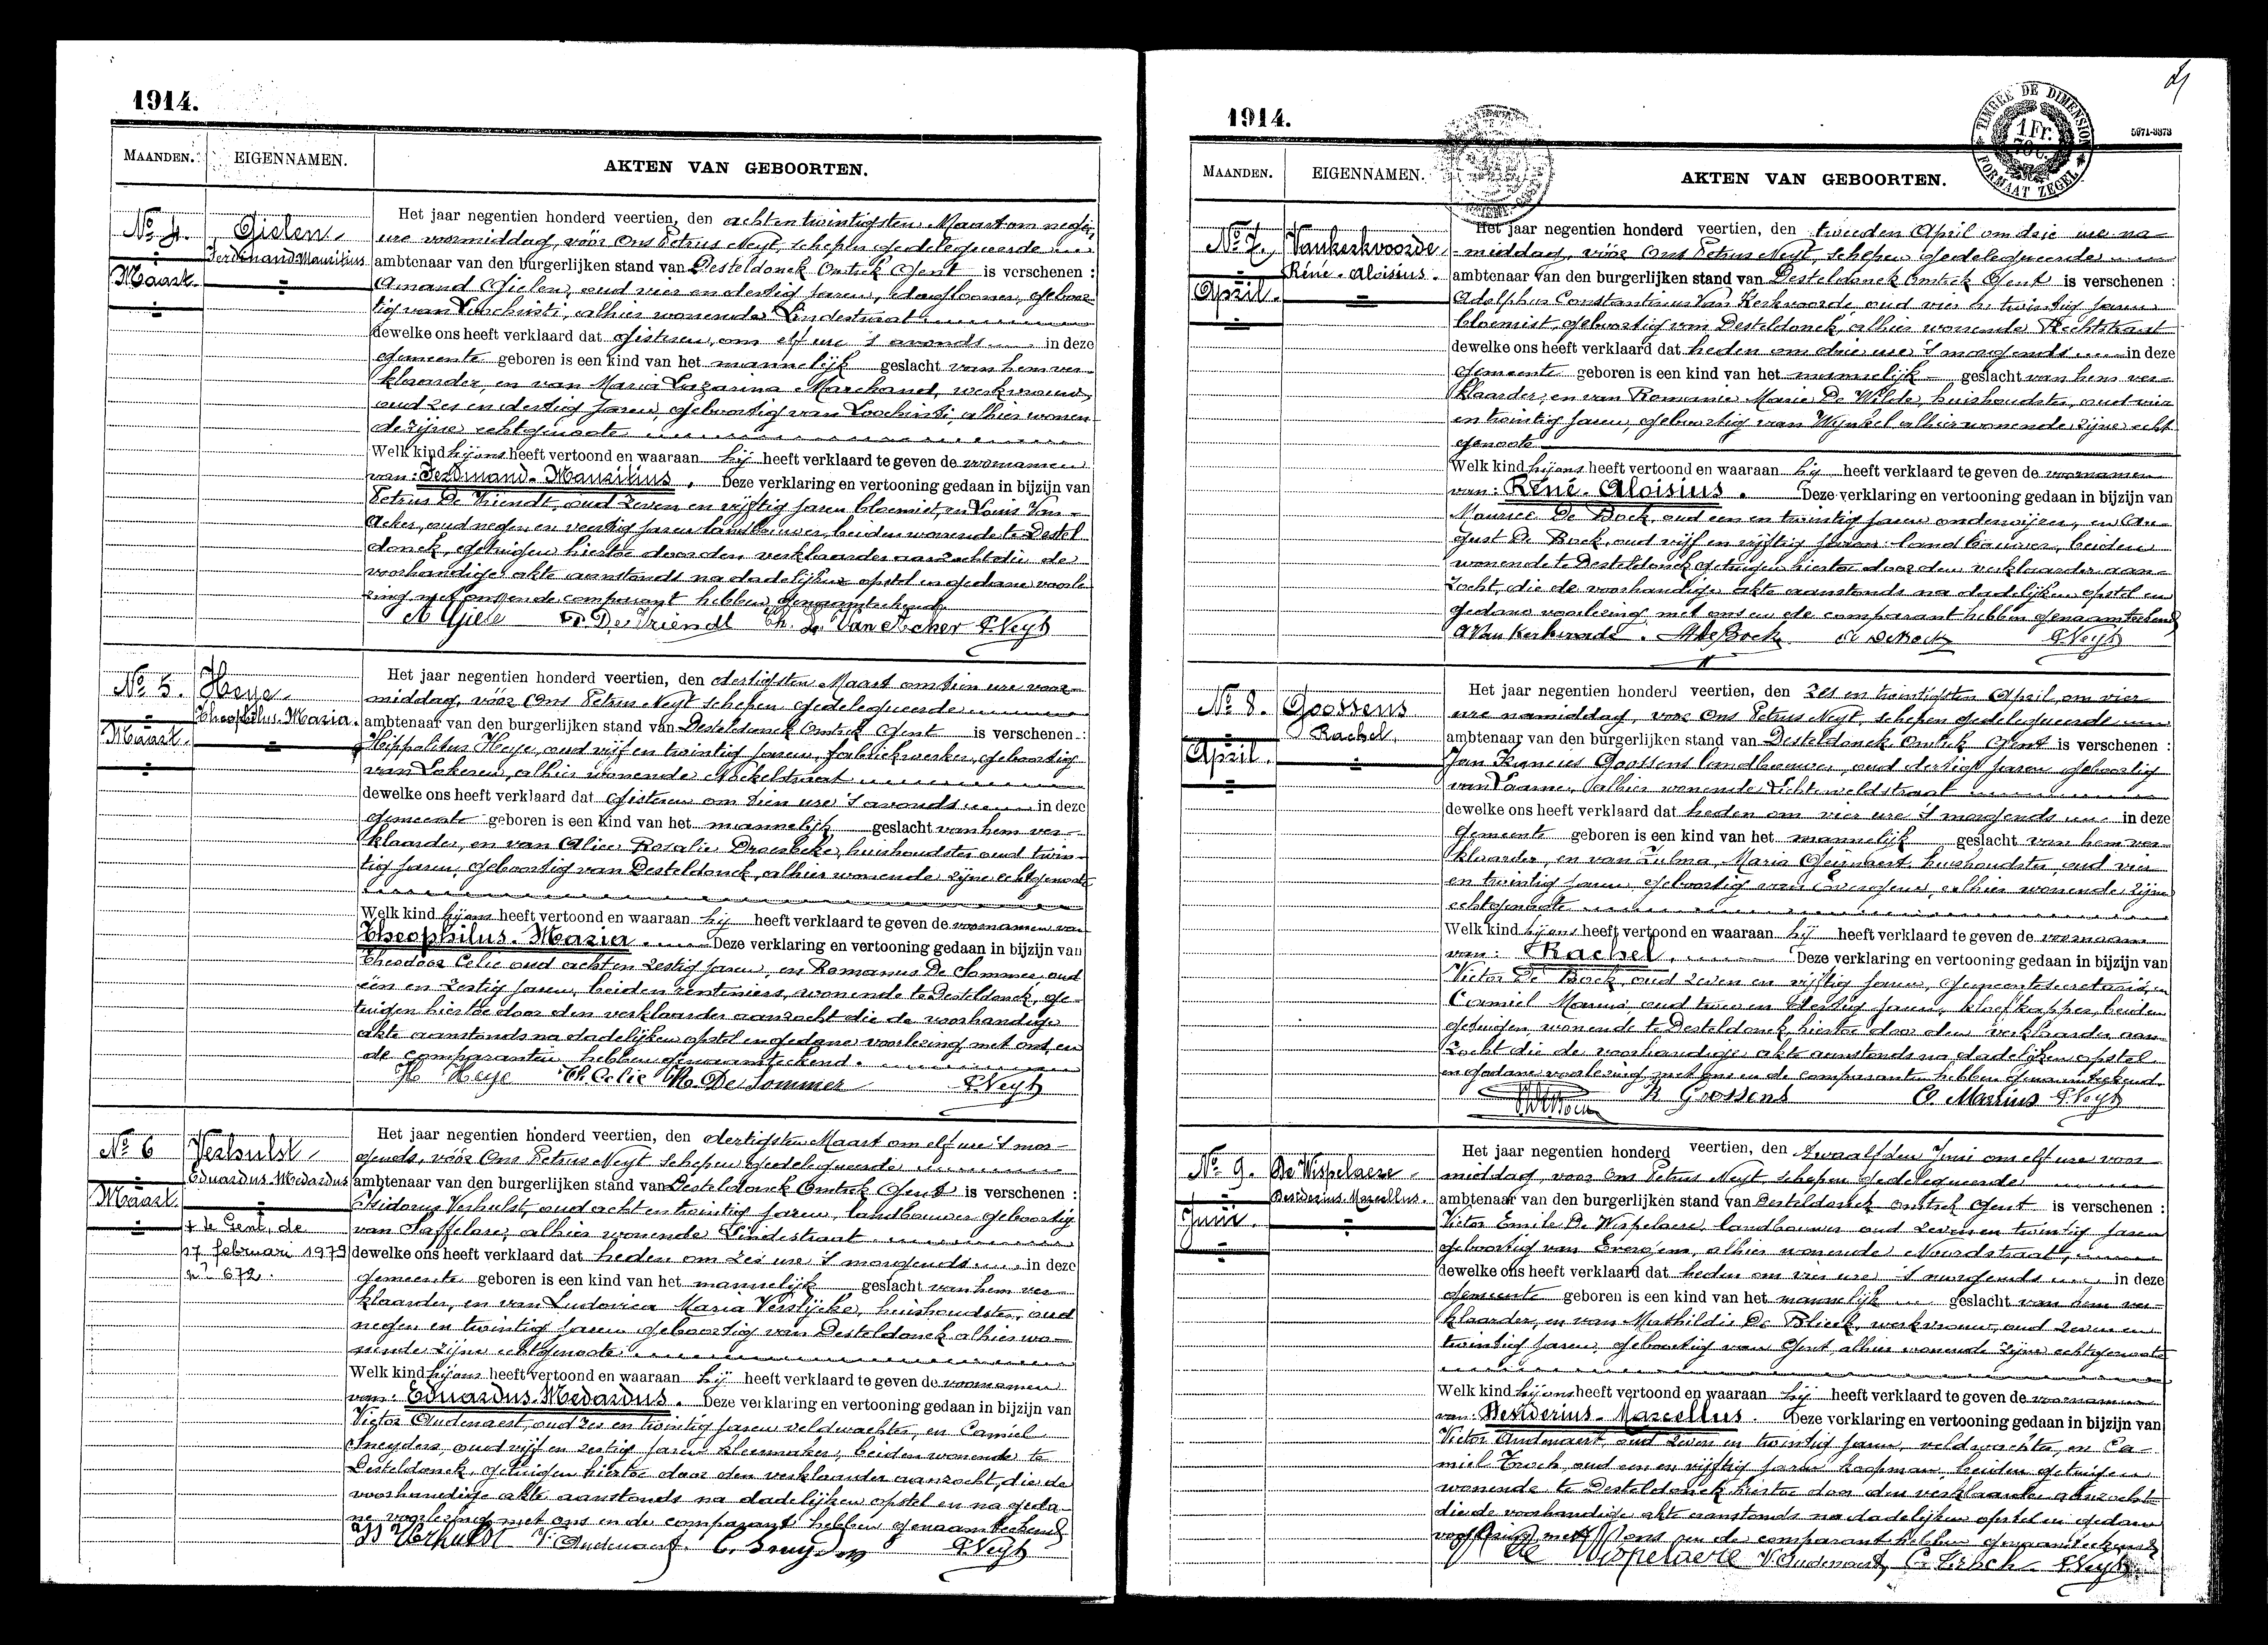 1914.
MAANDEN. EIGENNAMEN. AKTEN VAN GEBOORTEN.
No 4. Gielen
Ferdinand Mauritius
Maart.
Het jaar negentien honderd veertien, den acht en twintigsten Maart om negen
ure voormiddag, vóór Ons Petrus Neyt, schepen gedelegueerde
ambtenaar van den burgerlijken stand van Desteldonck Omtrek Gent is verschenen :
Amand Gielen, oud vier en dertig jaren, dagloner, geboor-
tig van Loochristi, alhier wonende Lindestraat
dewelke ons heeft verklaard dat gisteren, om elf ure 's avonds in deze
gemeente geboren is een kind van het mannelijk geslacht van hem ver-
klaarder, en van Maria Lazarina Marchand, werkvrouw,
oud zes en dertig jaren, geboortig van Loochristi, alhier wonen-
de zijne echtgenoote
Welk kind hij ons heeft vertoond en waaraan hij heeft verklaard te geven de voornamen
van: Ferdinand-Mauritius. Deze verklaring en vertooning gedaan in bijzijn van
Petrus De Vriendt, oud zeven en vijftig jaren bloemist, en Louis Van
Acker, oud negen en veertig jaren landbouwer, beiden wonende te Destel
donck, getuigen hiertoe door den verklaarder aanzocht die de
voorhandige akte aanstonds na dadelijken opstel en gedane voorle
zing met ons en de comparant hebben genaamteekend
A Giele P. De Vriendt Ch. L. Van Acker P. Neyt
No 5. Heye
Theophilus-Maria.
Maart.
Het jaar negentien honderd veertien, den dertigsten Maart om tien ure voor-
middag, vóór Ons Petrus Neyt schepen gedelegueerde
ambtenaar van den burgerlijken stand van Desteldonck Omtrek Gent is verschenen :
Hippolitus Heye, oud vijf en twintig jaren, fabriekwerker, geboortig
van Lokeren, alhier wonende
dewelke ons heeft verklaard dat gisteren om tien ure 's avonds in deze
gemeente geboren is een kind van het mannelijk geslacht van hem ver-
klaarder, en van Alice Rosalie Droesbeke, huishoudster oud twin-
tig jaren, geboortig van Desteldonck, alhier wonende zijne echtgenoote
Welk kind hij ons heeft vertoond en waaraan hij heeft verklaard te geven de voornamen van
Theophilus-Maria. Deze verklaring en vertooning gedaan in bijzijn van
Theodoor Celie oud acht en zestig jaren, en Romanus De Sommer oud
één en zestig jaren, beiden renteniers, wonende te Desteldonck, ge-
tuigen hiertoe door den verklaarder aanzocht die de voorhandige
akte aanstonds na dadelijken opstel en gedane voorlezing met ons en
de comparanten hebben genaamteekend.
H Heye Th. Celie R. De Sommer P. Neyt
No 6 Verhulst
Eduardus-Medardus
Maart.
† te Gent, de
17 februari 1979
no 672.
Het jaar negentien honderd veertien, den dertigsten Maart om elf ure 's mor-
gends, vóór Ons Petrus Neyt schepen gedelegueerde
ambtenaar van den burgerlijken stand van Desteldonck Omtrek Gent is verschenen :
Isidorus Verhulst, oud acht en twintig jaren, landbouwer geboortig
van Saffelare, alhier wonende Lindestraat
dewelke ons heeft verklaard dat heden om zes ure 's morgends in deze
gemeente geboren is een kind van het mannelijk geslacht van hem ver
klaarder, en van Ludovica Maria Verslijcke, huishoudster, oud
negen en twintig jaren geboortig van Desteldonck alhier wo-
nende zijne echtgenoote
Welk kind hij ons heeft vertoond en waaraan hij heeft verklaard te geven de voornamen
van: Eduardus-Medardus. Deze verklaring en vertooning gedaan in bijzijn van
Victor Audenaert, oud zes en twintig jaren veldwachter, en Camiel
Sneyders, oud vijf en zestig jaren kleermaker, beiden wonende te
Desteldonck, getuigen hiertoe door den verklaarder aanzocht, die de
voorhandige akte aanstonds na dadelijken opstel en na geda-
ne voorlezing met ons en de comparant hebben genaamteekend
Is Verhulst V. Audenaert. C. Sneyders P. Neyt
1914.
TIMBRE DE DIMENSION
1 Fr.
FORMAAT ZEGEL
5971-3373
MAANDEN. EIGENNAMEN. AKTEN VAN GEBOORTEN.
No 7. Vankerkvoorde
Réné-Aloisius.
April.
Het jaar negentien honderd veertien, den tweeden April om drie ure na-
middag, vóór Ons Petrus Neyt, schepen gedelegueerde
ambtenaar van den burgerlijken stand van Desteldonck Omtrek Gent is verschenen :
Adolphus Constantinus Van Kerkvoorde, oud vier en twintig jaren
bloemist, geboortig van Desteldonck, alhier wonende Rechtstraat
dewelke ons heeft verklaard dat heden om drie ure 's morgends in deze
gemeente geboren is een kind van het mannelijk geslacht van hem ver-
klaarder, en van Romanie Marie De Wilde, huishoudster, oud vier
en twintig jaren, geboortig van Wynkel alhier wonende zijne echt
genoote
Welk kind hij ons heeft vertoond en waaraan hij heeft verklaard te geven de voornamen
van: Réné-Aloisius. Deze verklaring en vertooning gedaan in bijzijn van
Maurice De Bock, oud een en twintig jaren onderwijzer, en Au-
gust De Bock, oud vijf en vijftig jaren landbouwer, beiden
wonende te Desteldonck getuigen hiertoe door den verklaarder aan-
zocht, die de voorhandige akte aanstonds na dadelijken opstel en
gedane voorlezing met ons en de comparant hebben genaamteekend
A Van Kerkvoorde. M De Bock A De Bock P. Neyt
No 8. Goossens
Rachel.
April.
Het jaar negentien honderd veertien, den zes en twintigsten April, om vier
ure namiddag, voor Ons Petrus Neyt, schepen gedelegueerde
ambtenaar van den burgerlijken stand van Desteldonck Omtrek Gent is verschenen :
Jan Goossens landbouwer, oud dertigt jaren geboortig
van Laarne, alhier wonende Lichterveldstraat
dewelke ons heeft verklaard dat heden om vier ure 's morgends in deze
gemeente geboren is een kind van het mannelijk geslacht van hem ver-
klaarder, en van Zulma Maria Geirnaert huishoudster, oud vier
en twintig jaren geboortig van Everghem, alhier wonende zijne
echtgenoote
Welk kind hij ons heeft vertoond en waaraan hij heeft verklaard te geven de voornaam
van: Rachel. Deze verklaring en vertooning gedaan in bijzijn van
Victor De Bock, oud zeven en vijftig jaren, gemeentesecretaris, en
Camiel Marius oud twee en dertig jaren, kloefkapper, beiden
getuigen, wonende te Desteldonck, hiertoe door den verklaarder aan-
zocht die de voorhandige akte aanstonds na dadelijken opstel
en gedane voorlezing met ons en de comparanten hebben genaamteekend.
Goossens C. Marius P. Neyt
No 9. De Wispelaere
Desiderius-Marcellus.
Juni.
Het jaar negentien honderd veertien, den twaalfden Juni om elf ure voor-
middag, voor Ons Petrus Neyt, schepen gedelegueerde
ambtenaar van den burgerlijken stand van Desteldonck omtrek Gent is verschenen :
Victor Emile De Wispelaere, landbouwer oud zeven en twintig jaren
geboortig van Evergem, alhier wonende Noordstraat,
dewelke ons heeft verklaard dat heden om vier ure 's morgends in deze
gemeente geboren is een kind van het mannelijk geslacht van hem ver-
klaarder, en van Mathildis De Blieck, werkvrouw, oud zeven en
twintig jaren, geboortig van Gent, alhier wonende zijne echtgenoote
Welk kind hij ons heeft vertoond en waaraan hij heeft verklaard te geven de voornamen
van: Desiderius-Marcellus. Deze verklaring en vertooning gedaan in bijzijn van
Victor Audenaert, oud zeven en twintig jaren, veldwachter, en Ca-
miel Troch, oud een en vijftig jaren koopman, beiden getuigen
wonende te Desteldonck hiertoe door den verklaarder aanzocht
die de voorhandige akte aanstonds na dadelijken opstel en gedane
voorlezing met ons en de comparant hebben genaamteekend
De Wispelaere V. Audenaert, C. Troch P. Neyt